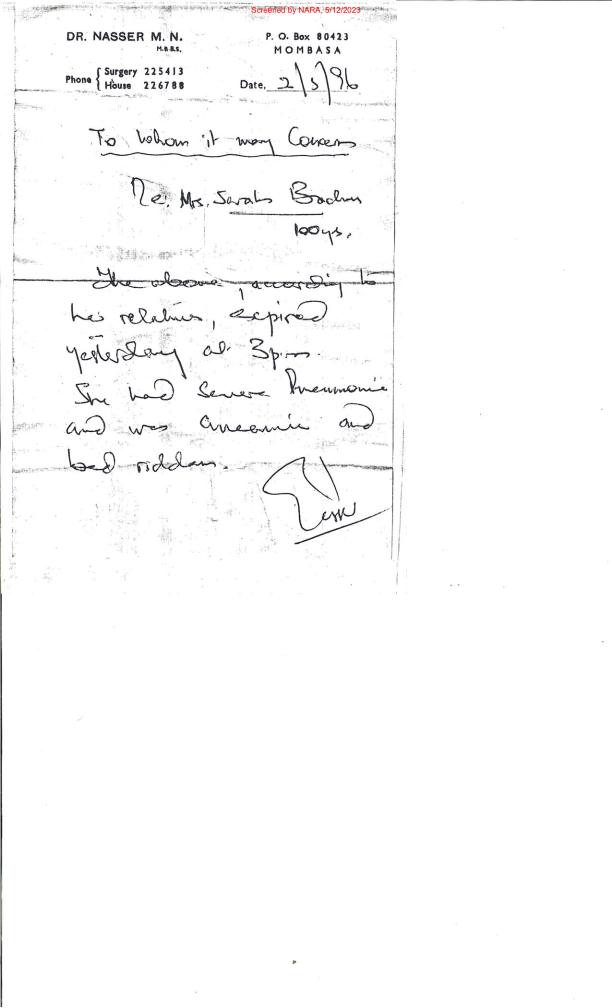 Screened by NARA, 5/12/2023
DR. NASSER M. N.
M.B.B.S.
P. O. Box 80423
MOMBASA
Phone { Surgery 225413
House 226788
Date, 2/5/96
To whom it may Concern
Re: Mrs. Sarah
100ys.
The above, according to
her relatives, expired
yesterday at 3pm.
She had Severe Pneumonia
and was anaemic and
bed ridden.